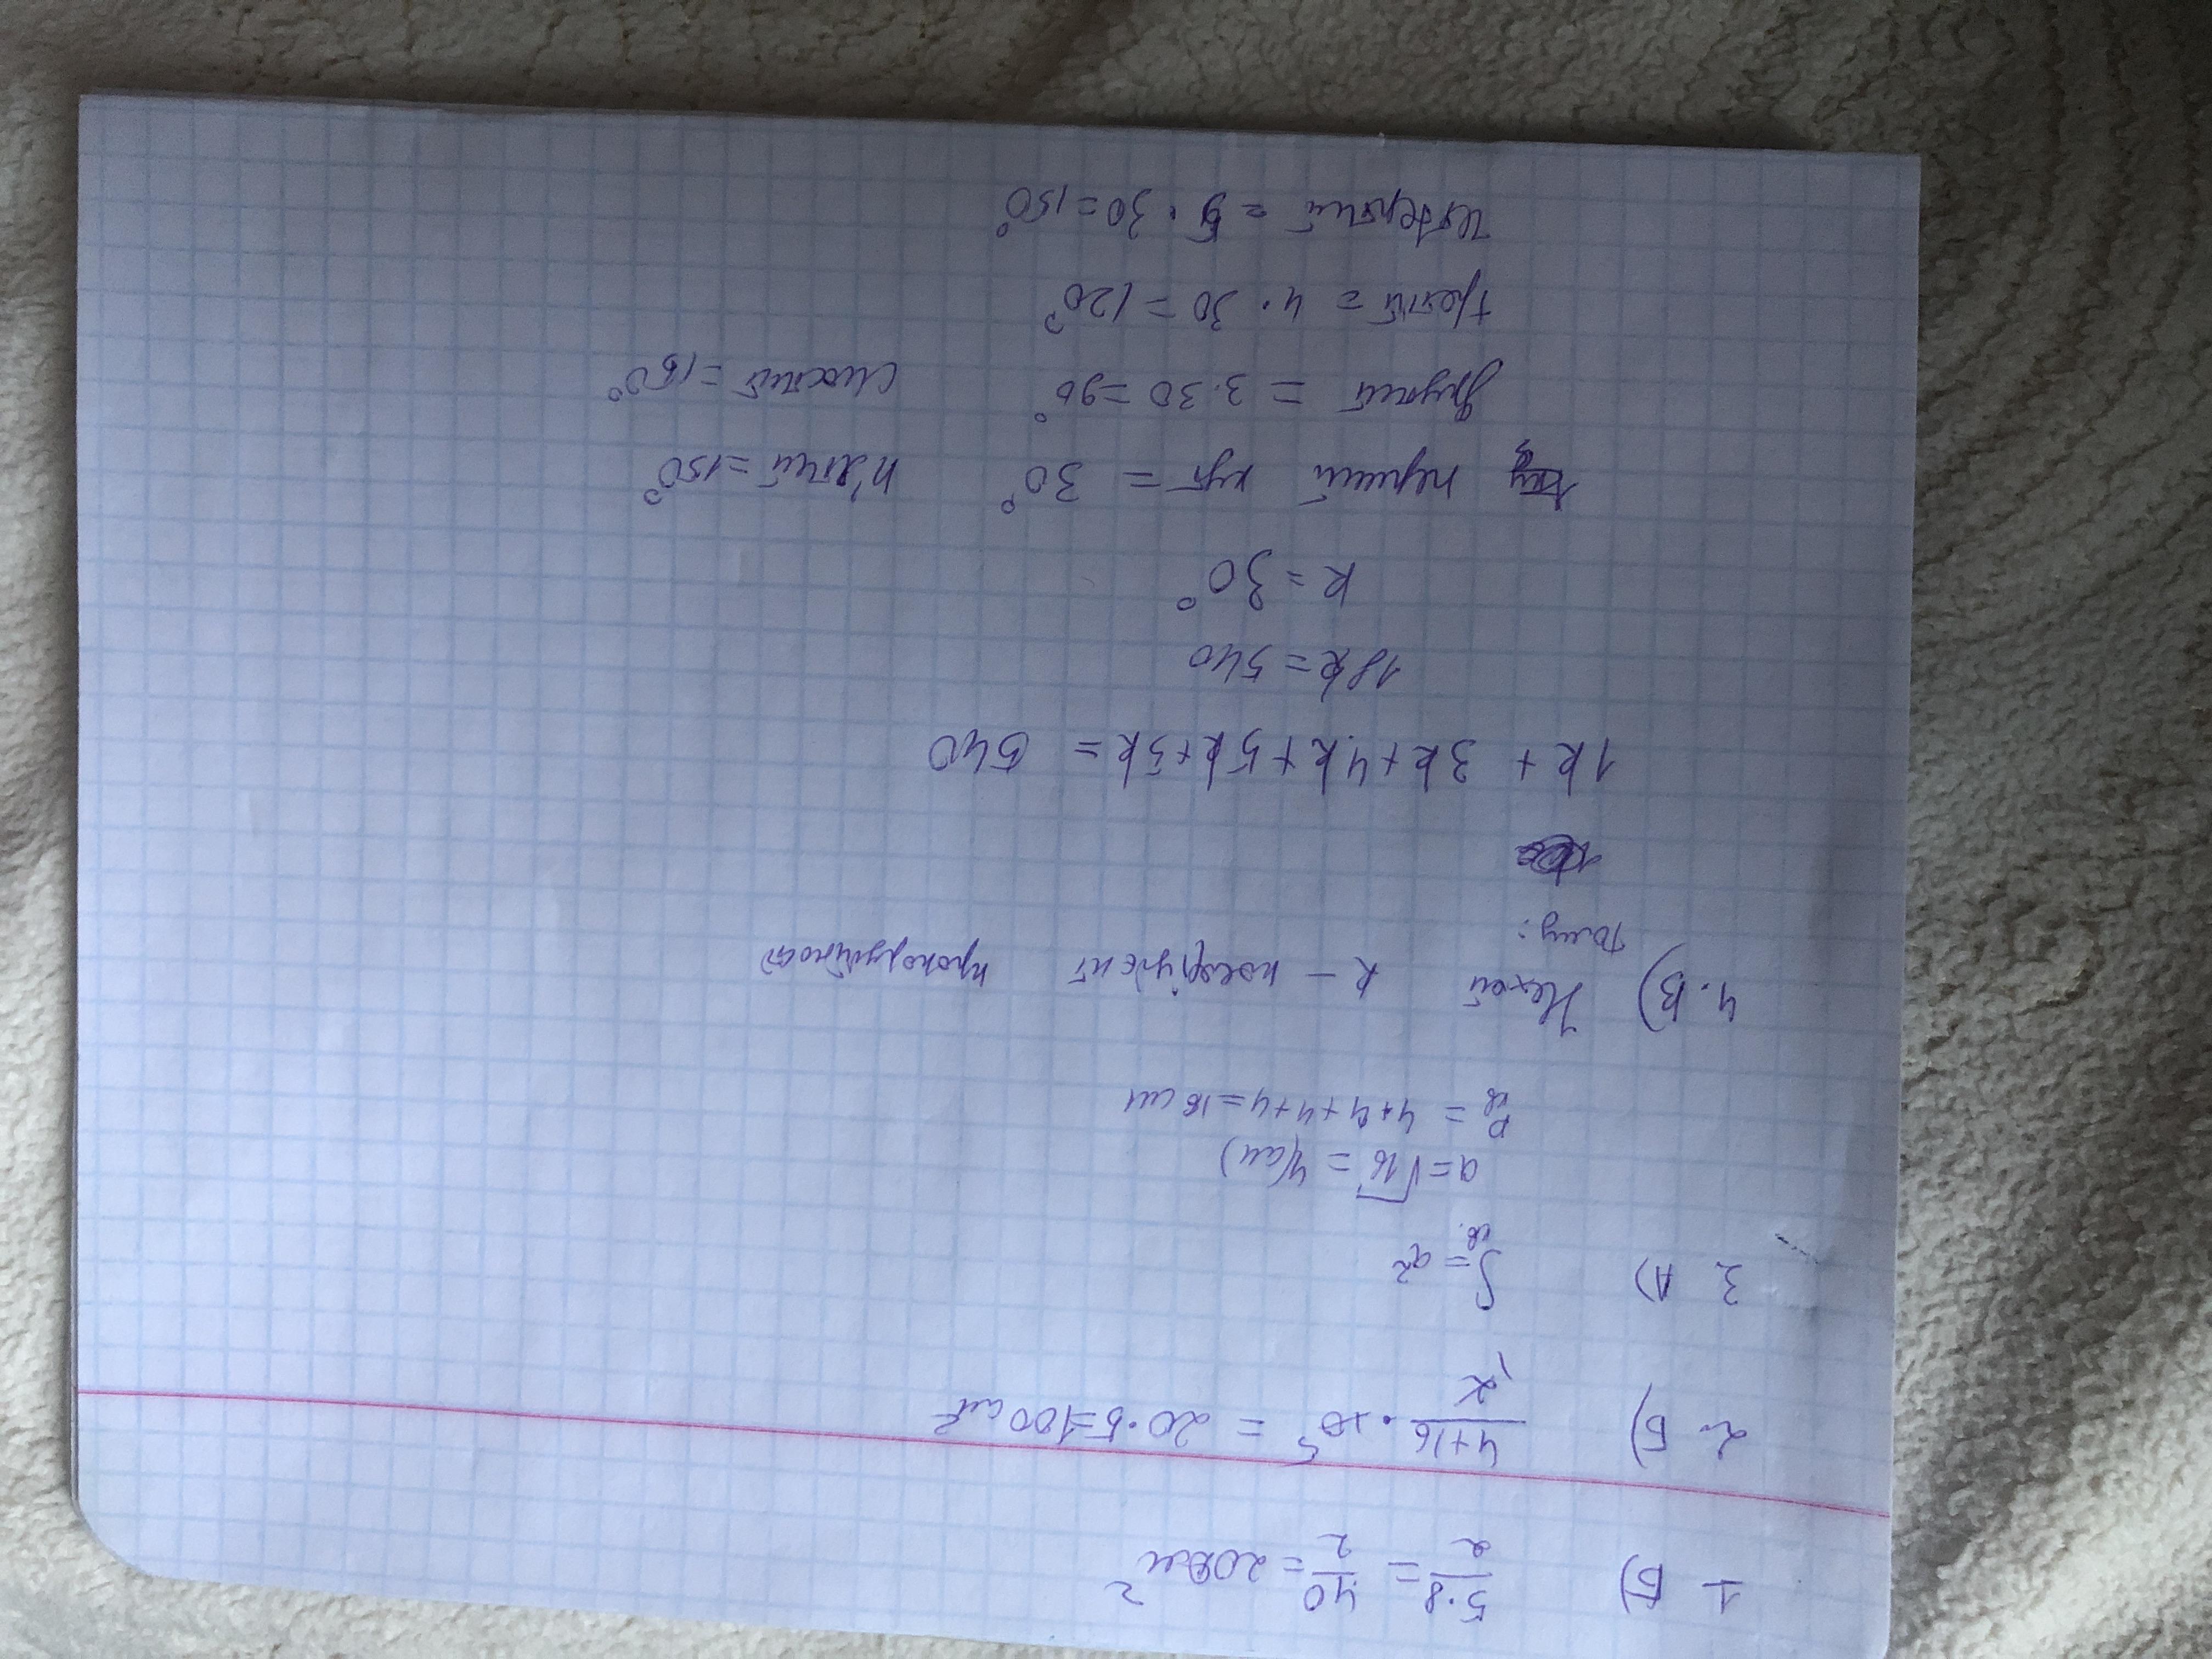 1 Б) 5·8/2 = 40/2 = 20см²
2. Б) 4+16/2 · 10 = 20·5=100см²
3 А) Sкв. = a²
a=√16 = 4(см)
Pкв = 4+4+4+4=16см
4. В) Нехай k – коефіцієнт пропорційності
тому:
1k + 3k+4k+5k+5k = 540
18k=540
k=30°
перший кут = 30° п'ятий=150°
другий = 3·30=90°
третій = 4·30=120°
четвертий = 5·30=150°